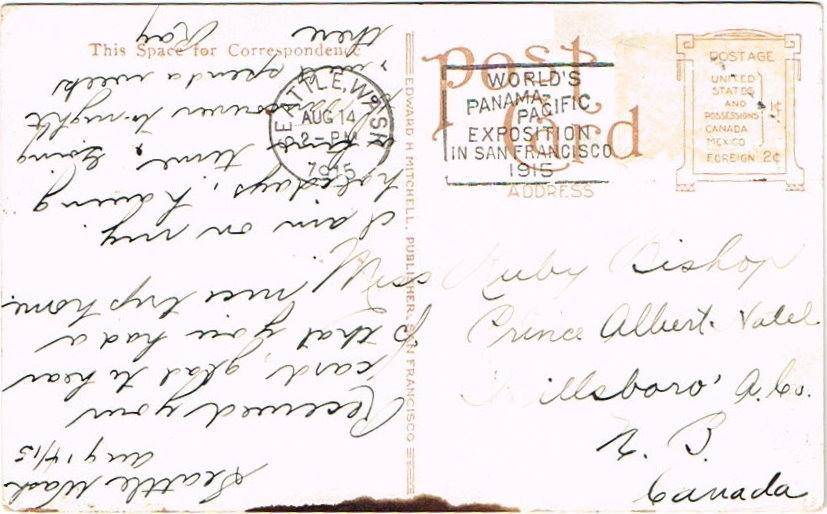 This Space for Correspondence
Seattle Wash
Aug 14/15
Received your
card, glad to hear
that you had a
nice trip home.
I am on my
holidays, having
time, going
Vancouver to-night
will spend a week
there Ray
EDWARD H. MITCHELL, PUBLISHER, SAN FRANCISCO
Post Card
ADDRESS
SEATTLE, WASH.
AUG 14
2-PM
1915
WORLD'S
PANAMA-PACIFIC
EXPOSITION
IN SAN FRANCISCO
1915
POSTAGE
UNITED
STATES
AND
POSSESSIONS
CANADA
MEXICO
1¢
FOREIGN 2¢
Miss Ruby Bishop
Prince Albert. Hotel
Hillsboro, A. Co.
N. B.
Canada